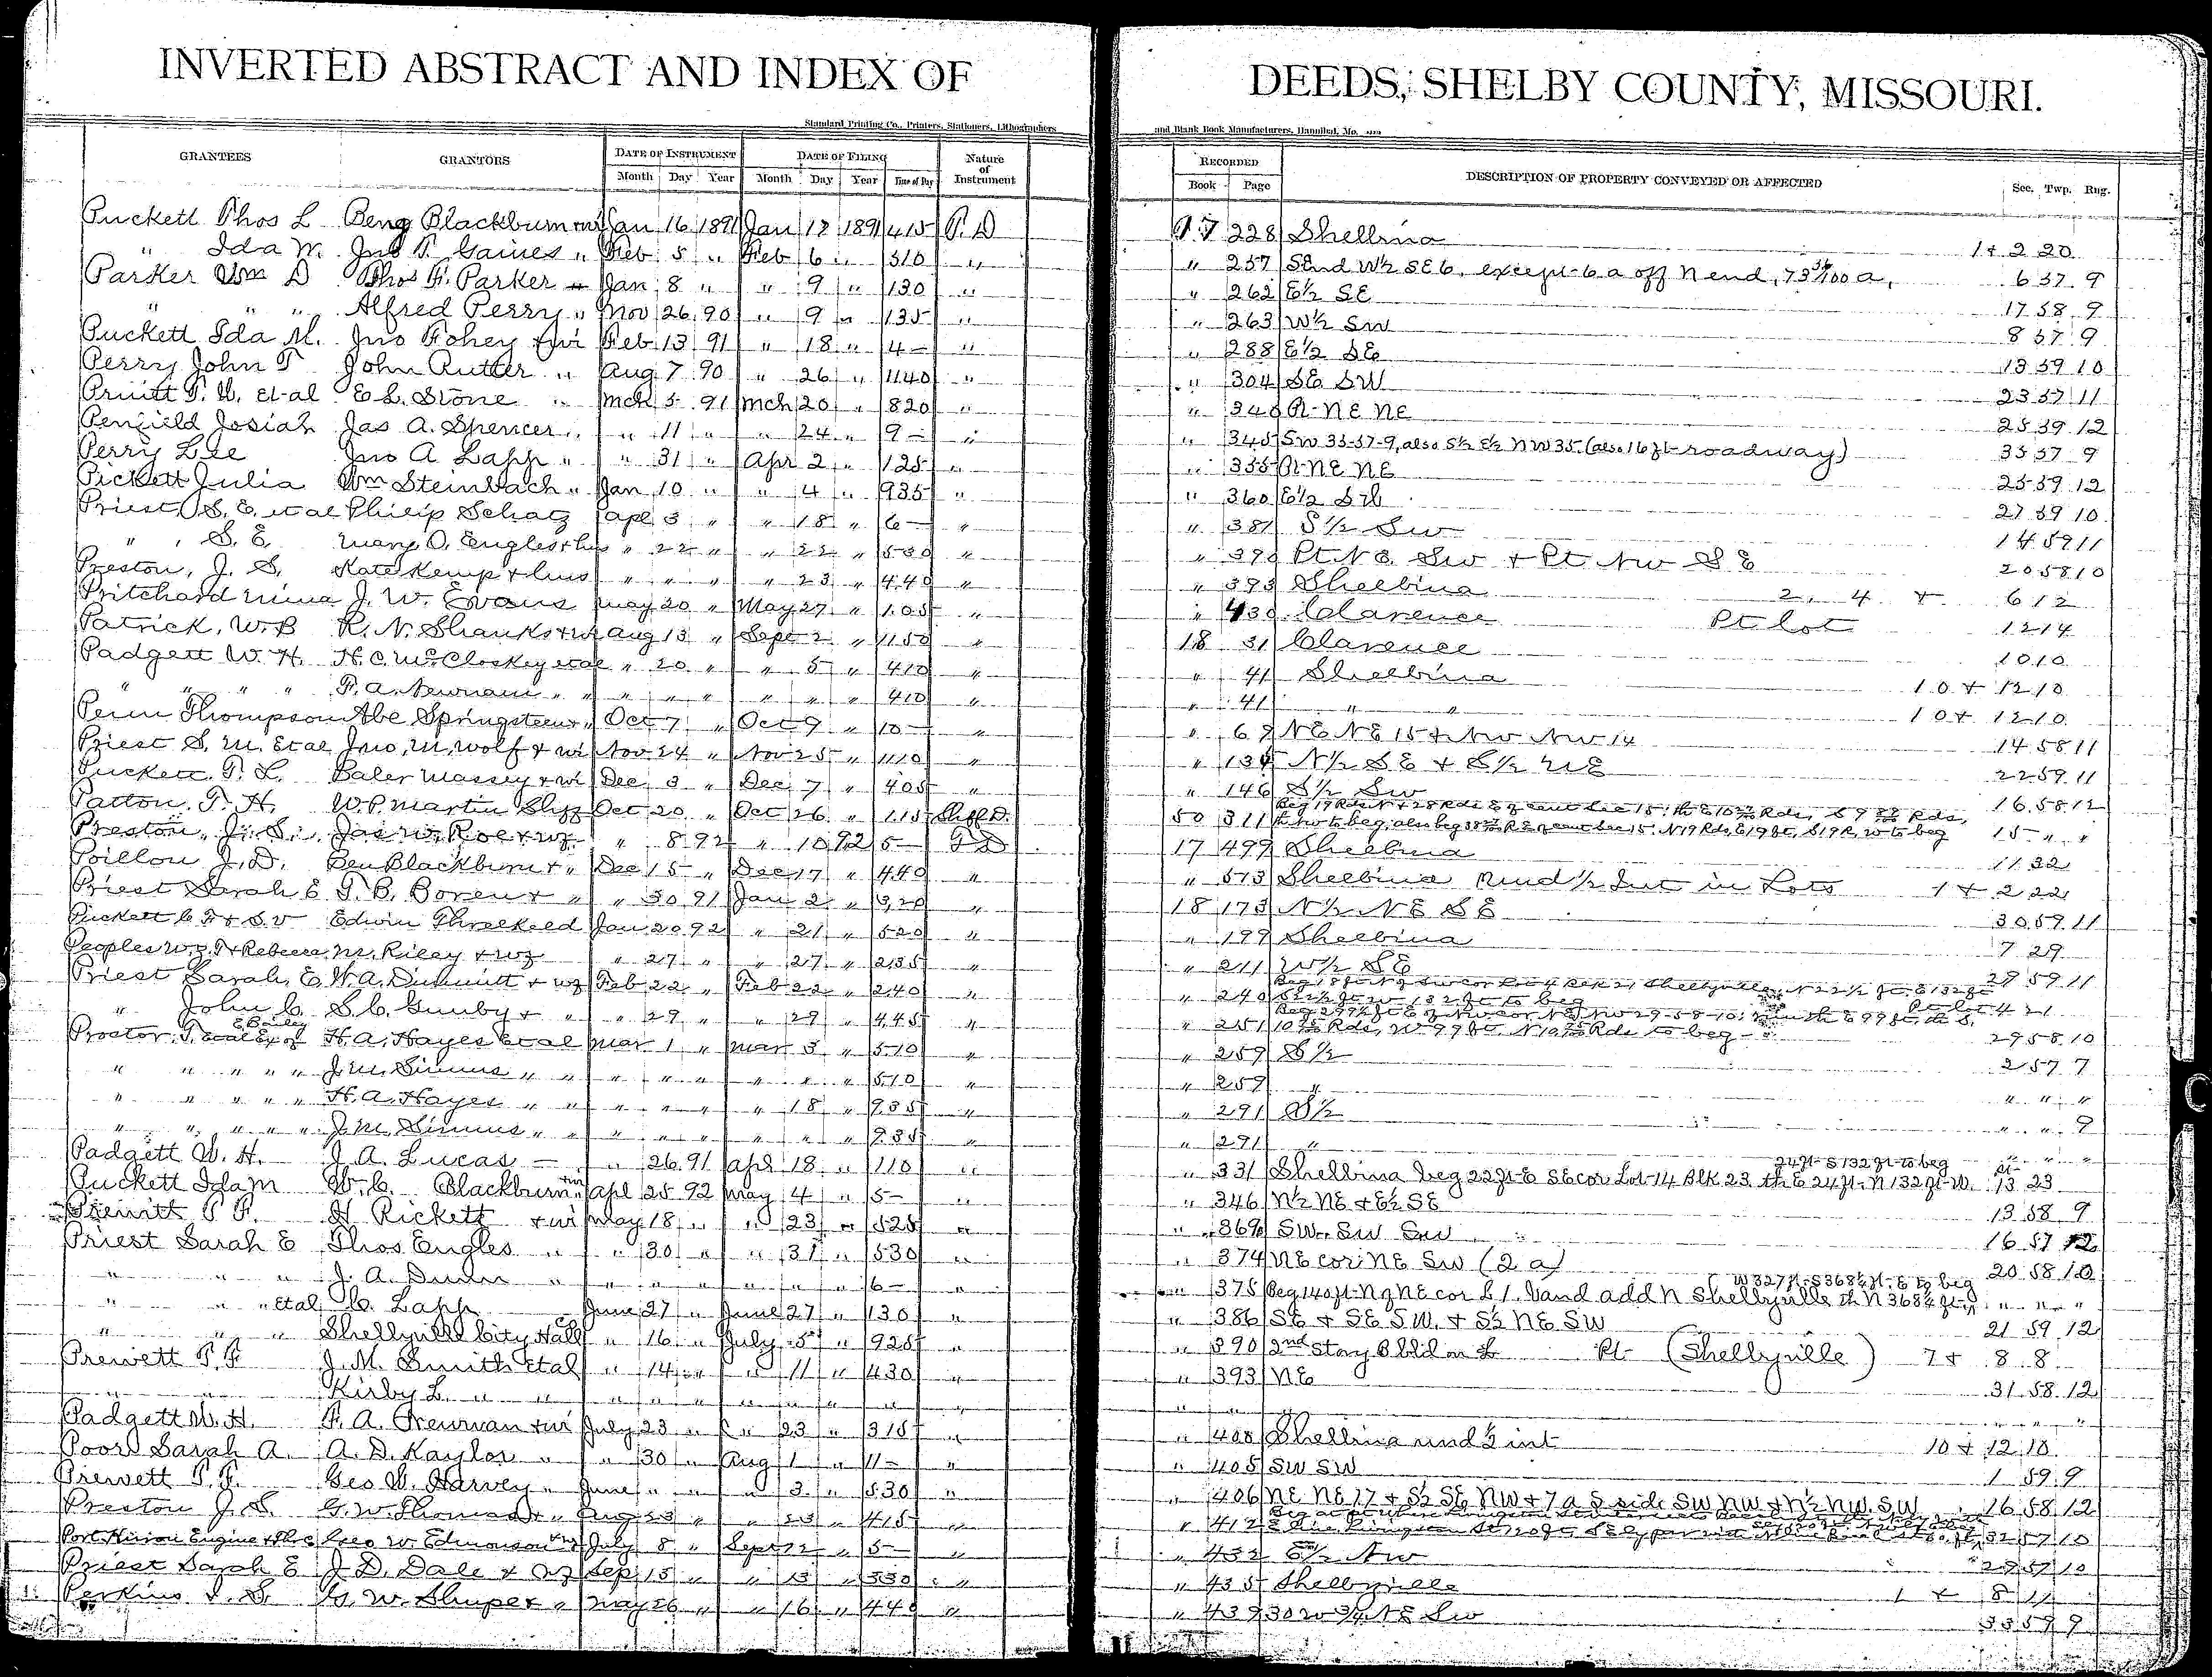 INVERTED ABSTRACT AND INDEX OF DEEDS, SHELBY COUNTY, MISSOURI.
Standard Printing Co., Printers, Stationers, Lithographers and Blank Book Manufacturers, Hannibal, Mo.
GRANTEES GRANTORS DATE OF INSTRUMENT DATE OF FILING Nature of Instrument RECORDED DESCRIPTION OF PROPERTY CONVEYED OR AFFECTED Sec. Twp. Rng.
Month Day Year Month Day Year Time of Day Book Page
Puckett Thos L Benj Blackburn + wi Jan 16 1891 Jan 17 1891 415 T. D 17 228 Shelbina 1 + 2 20
" Ida M. Jno T. Gaines " Feb 5 " Feb 6 " 310 " " 257 S end W½ SE 6, except 6 a off N end, 73 36/100 a, 6 57 9
Parker Wm D Thos F. Parker Jan 8 " " 9 " 130 " " 262 E½ SE 17 58 9
" " " Alfred Perry " Nov 26 90 " 9 " 135 " " 263 W½ SW 8 57 9
Puckett Ida M. Jno Fohey + wi Feb 13 91 " 18 " 4 - " " 288 E½ SE 13 59 10
Perry John T John Rutter " Aug 7 90 " 26 " 1140 " " 304 SE SW 23 57 11
Pruitt T. W. et al E L. Stone " Mch 5 91 Mch 20 " 820 " " 340 Pt NE NE 25 39 12
Penfield Josiah Jas A. Spencer " " 11 " " 24 " 9 - " " 345 SW 35-57-9, also S½ E½ NW 35 (also 16 ft roadway) 35 57 9
Perry Lee Jno A Lapp " " 31 " Apr 2 " 125 " " 355 Pt NE NE 25 59 12
Pickett Julia Wm Steinbach " Jan 10 " " 4 " 935 " " 360 E½ SW 27 59 10
Priest, S. E. et al Philip Schatz Apl 3 " " 18 " 6 - " " 381 S½ SW 14 59 11
" S. E. Mary O. Engles + hus " 22 " " 22 " 530 " " 390 Pt NE SW + Pt NW SE 20 58 10
Preston, J. S. Kate Kemp + hus " " " " 23 " 440 " " 393 Shelbina 2, 4 + 6 12
Pritchard Mina J. W. Evans May 20 " May 27 " 105 " " 430 Clarence Pt lot 12 14
Patrick, W. B R. N. Shanks + wi Aug 13 " Sept 2 " 1150 " 18 31 Clarence 10 10
Padgett W. H. H. C. McCloskey et al " 20 " " 5 " 410 " " 41 Shelbina 10 + 12 10
" " " F. A. Newman " " " " " " " " 410 " " 41 " " 10 + 12 10
Penn Thompson Abe Springsteen + " Oct 7 " Oct 9 " 10 - " " 67 NE NE 15 + NW NW 14 14 58 11
Priest S. M. et al Jno. M. Wolf + wi Nov 24 " Nov 25 " 1110 " " 134 N½ SE + S½ NE 22 59 11
Puckett T. L. Baler Massey + wi Dec 3 " Dec 7 " 405 " " 146 S½ SW 16 58 12
Patton, T. H. W. P. Martin Shff Oct 20 " Oct 26 " 115 Shff D. 50 311 15 " "
Preston, J. S. Jas W. Roe + wf " 8 92 " 10 92 5 - T D 17 499 Shelbina 11 32
Poillon J. D. Ben Blackburn + " Dec 15 " Dec 17 " 440 " " 573 Shelbina Und ½ Int in Lots 1 + 2 22
Priest Sarah E T. B. Boren + " " 30 91 Jan 2 " 320 " 18 173 N½ NE SE 30 59 11
Puckett C F + S. V Edwin Threlkeld Jan 20 92 " 21 " 520 " " 199 Shelbina 7 29
Peoples W. T + Rebecca M. Riley + wf " 27 " " 27 " 235 " " 211 W½ SE 29 59 11
Priest Sarah, E W. A. Dimmitt + wf Feb 22 " Feb 22 " 240 " " 240 Pt lot 4 21
" John C S. C. Gunby + " " 29 " " 29 " 445 " " 251 29 58 10
Proctor, T. et al Ex of E Bailey H. A. Hayes et al Mar 1 " Mar 3 " 510 " " 259 S½ 2 57 7
" " " " " J. M. Simms " " " " " " " " 510 " " 259 " " " "
" " " " " H. A. Hayes " " " " " " 18 " 935 " " 291 S½ " " 9
" " " " " J. M. Simms " " " " " " " " 935 " " 291 " " " "
Padgett W. H. J. A. Lucas - " 26 91 Apl 18 " 110 " " 331 Shelbina beg 22 ft E SE cor Lot 14 Blk 23, th E 24 ft N 132 ft W. 24 ft S 132 ft to beg pt 13 23
Puckett Ida M W. C. Blackburn + wi Apl 25 92 May 4 " 5 - " " 346 N½ NE + E½ SE 13 58 9
Prewitt T F. H Rickett + wi May 18 " " 23 " 525 " " 369 SW SW SW 16 57 12
Priest Sarah E Thos Engles " " 30 " " 31 " 530 " " 374 NE cor NE SW (2 a) 20 58 10
" " " J. A. Dunn " " " " " " " 6 - " " 375 Beg 140 ft N of NE cor L 1. Vand add N Shelbyville th N 368½ ft W 327 ft S 368½ ft E to beg " " "
" " " et al C. Lapp June 27 " June 27 " 130 " " 386 SE + SE SW. + S½ NE SW 21 59 12
" " " Shelbyville City Hall Co " 16 " July 5 " 925 " " 390 2nd Story B bld on Pt (Shelbyville) 7 + 8 8
Prewett T. F. J. M. Smith et al " 14 " " 11 " 430 " " 393 NE 31 58 12
" " Kirby L. " " " " " " " " " " " " " " "
Padgett W. H. F. A. Newman + wi July 23 " " 23 " 315 " " 400 Shelbina und ½ int 10 + 12 10
Poor Sarah A. A. D. Kaylor " " 30 " Aug 1 " 11 - " " 405 SW SW 1 59 9
Prewett T. F. Geo W. Harvey " June " " " 3 " 530 " " 406 NE NE 17 + S½ SE NW + 7 a S side SW NW + N½ NW SW 16 58 12
Preston J. S. G. W. Thomas + " Aug 23 " " 23 " 415 " " 412 32 57 10
Port Huron Engine + Geo W. Edmonson + wf July 8 " Sept 12 " 5 - " " 432 E½ NW 29 57 10
Priest Sarah E J. D. Dale + wf Sep 15 " " 15 " 530 " " 435 Shelbyville 1 + 8 11
Perkins I. S. G. W. Shuper + " May 26 " " 16 " 440 " " 439 30 W ¾ NE SW 33 59 9